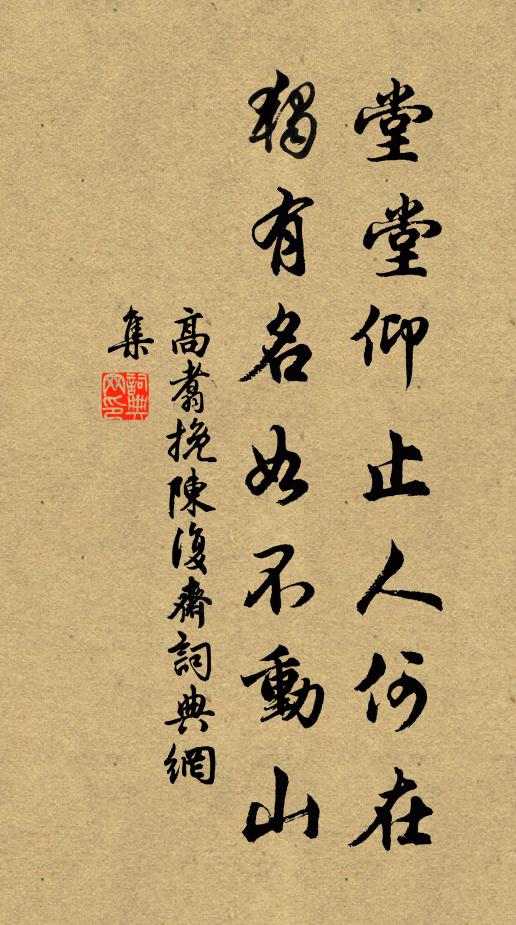 堂堂仰止人何在
獨有名如不動山
高翥挽陳復齋詞典網
集
詞典網印